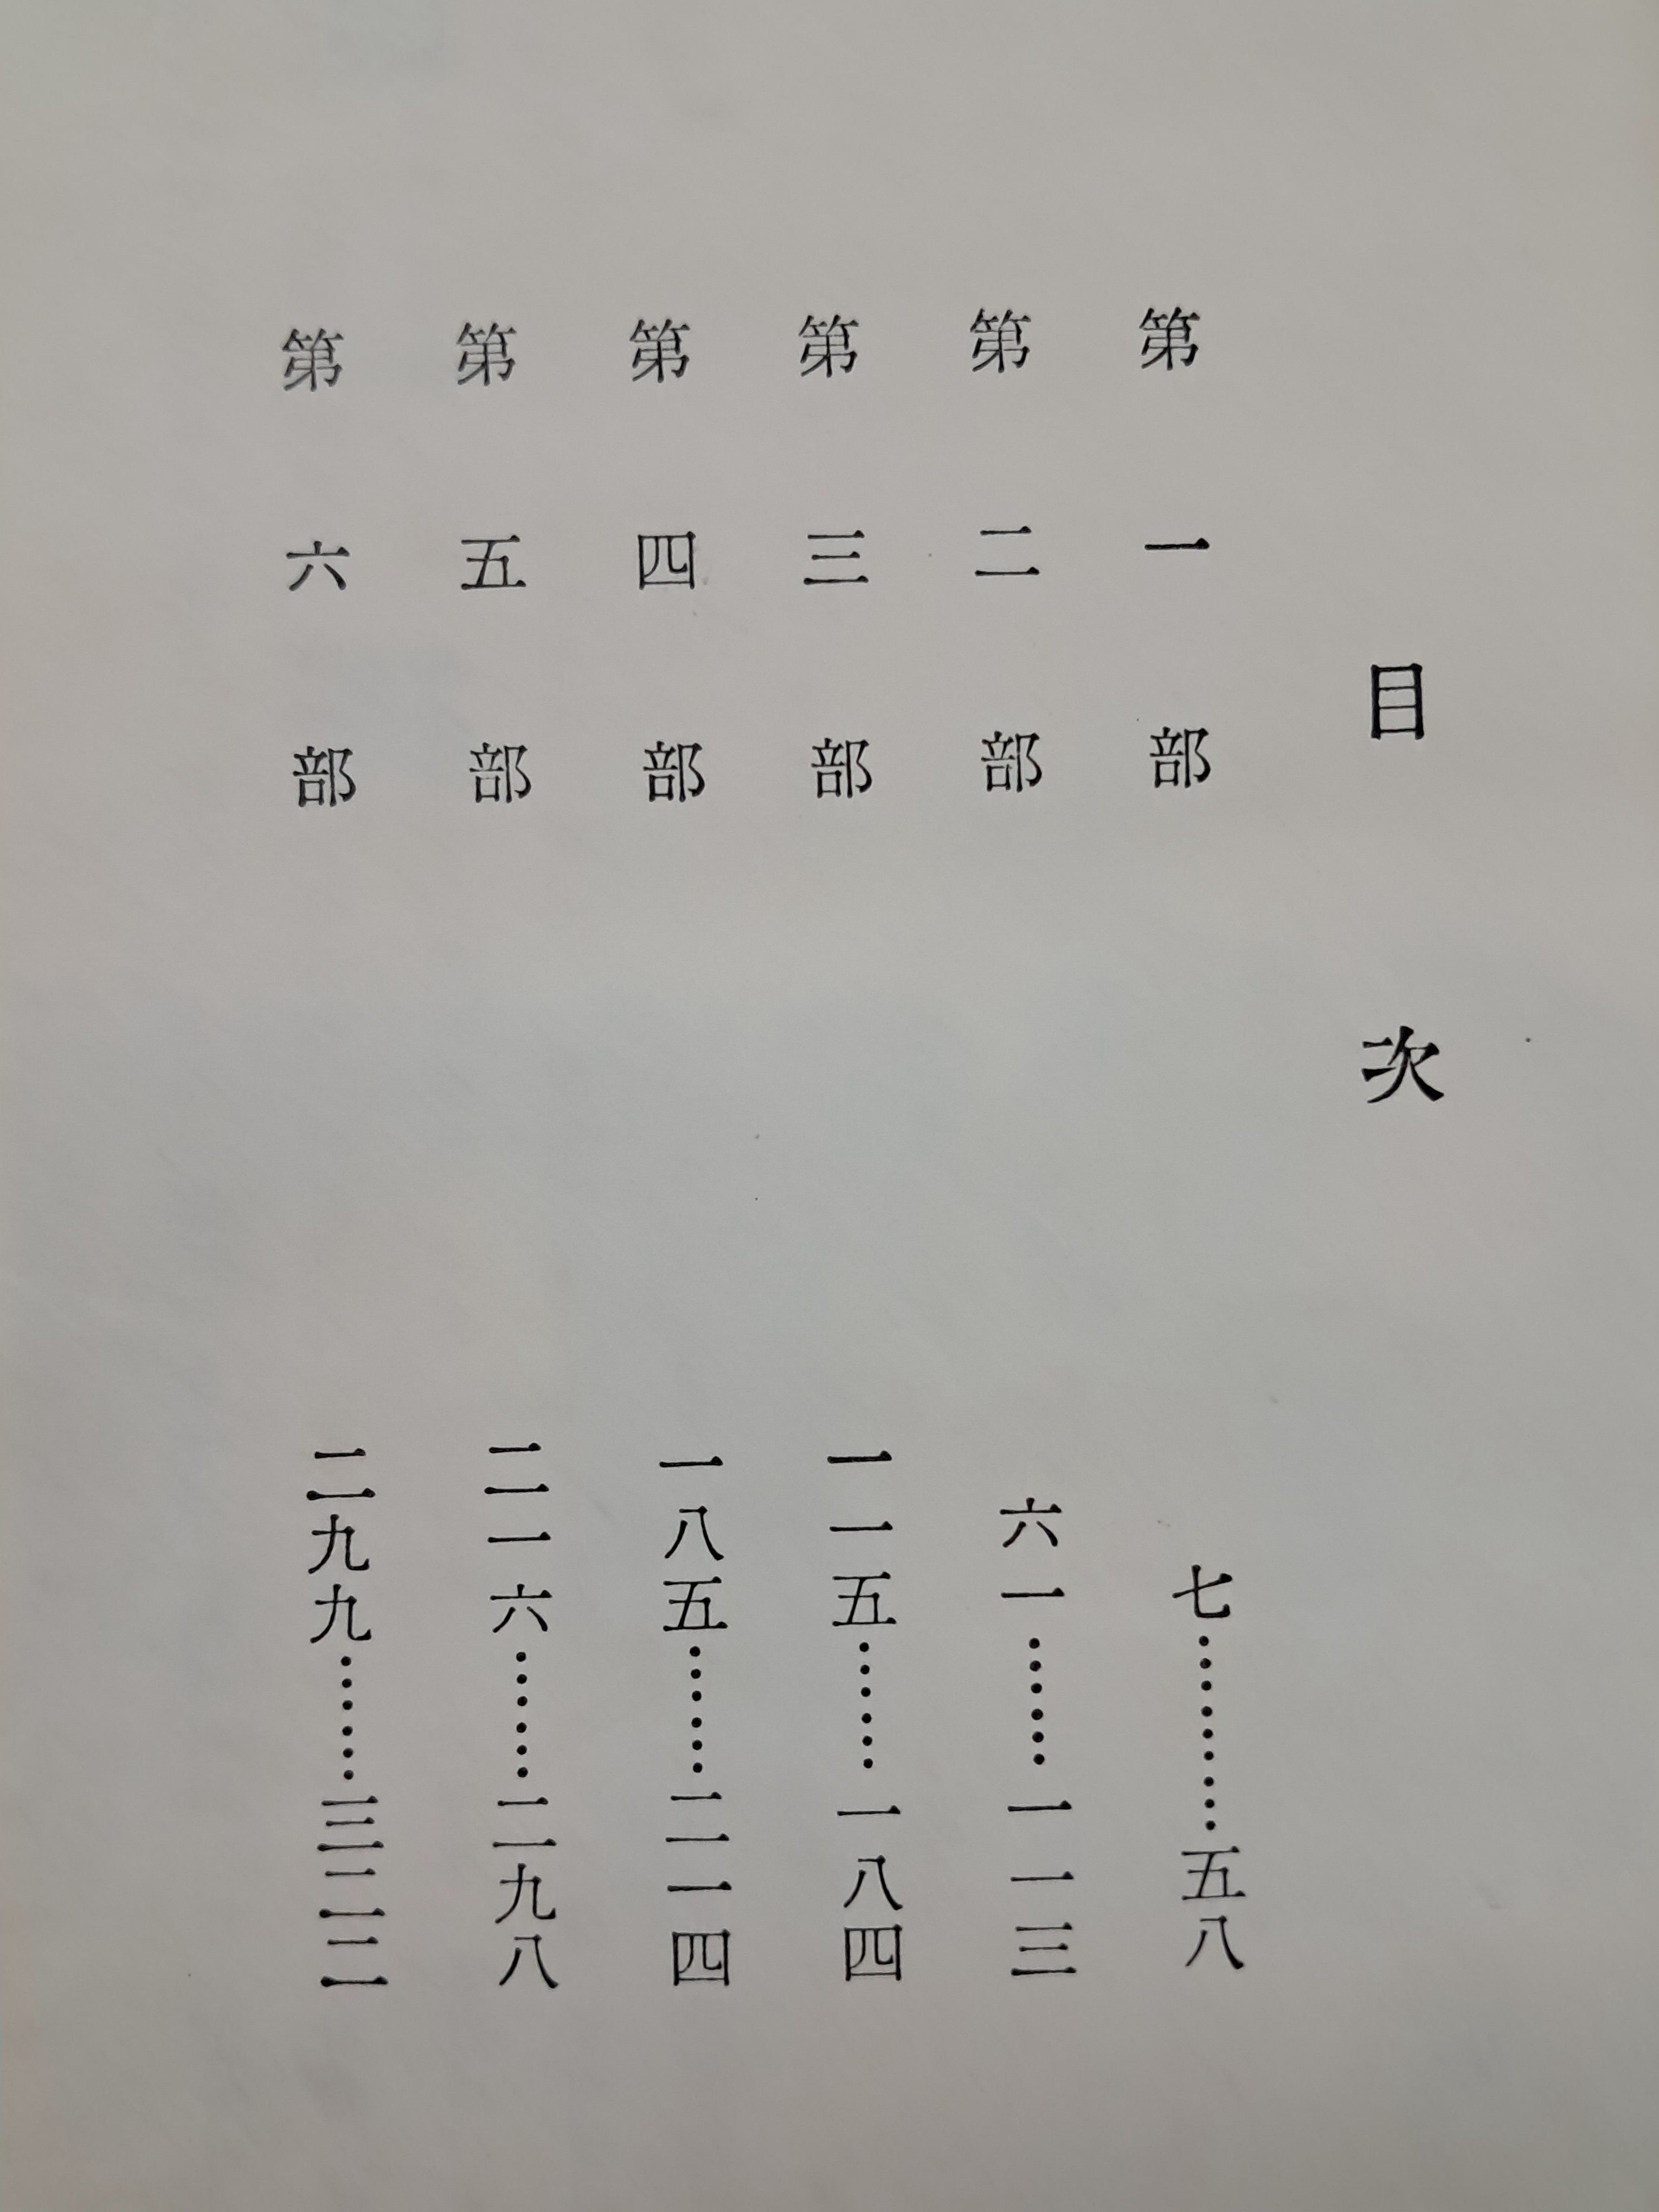 目次
第一部 七………五八
第二部 六一……一一三
第三部 一一五……一八四
第四部 一八五……二一四
第五部 二一六……二九八
第六部 二九九……三二二